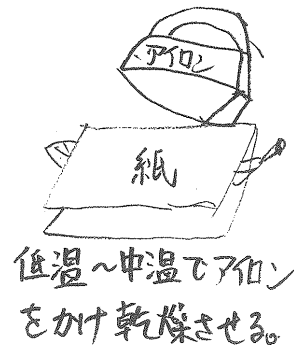 アイロン
紙
低温～中温でアイロン
をかけ乾燥させる。